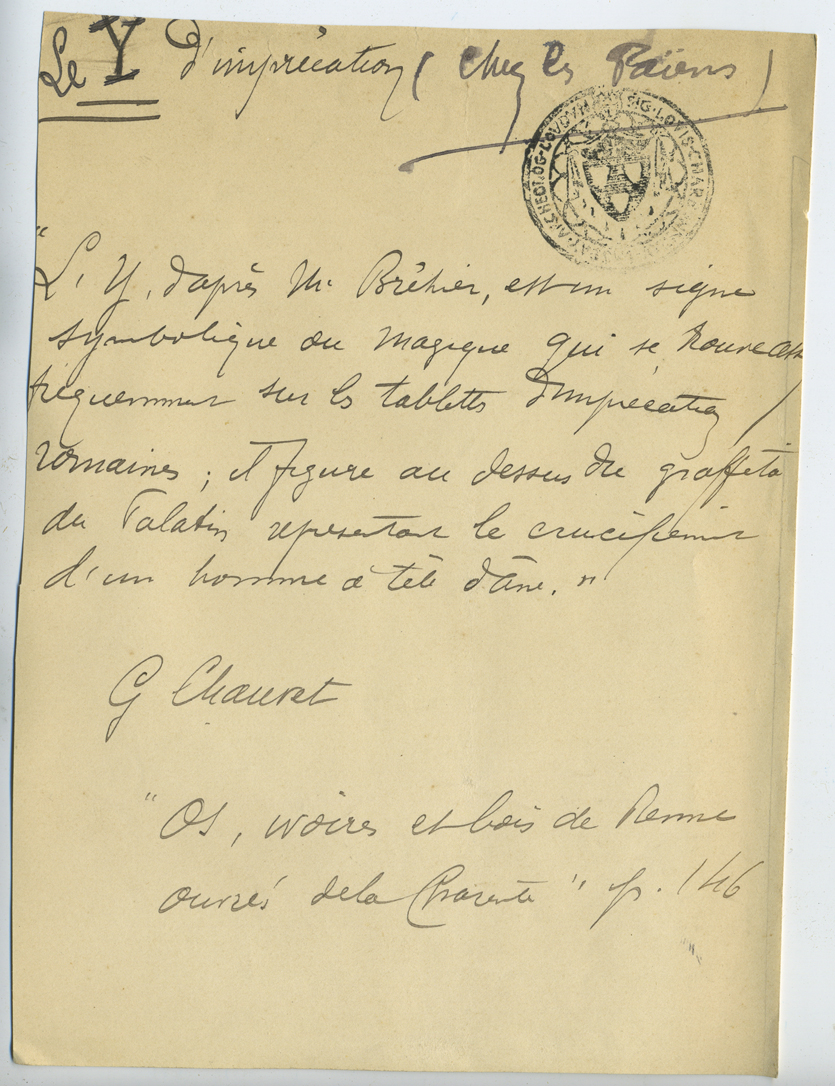 Le Y d'imprécation (chez les Païens)
SIG·LOVIS·CHARB
ARCHEOLOG·LOVDVN
"L'Y, d'après Mr Bréhier, est un signe
symbolique ou magique qui se trouve assez
fréquemment sur les tablettes d'imprécation
romaines ; il figure au dessus du graffito
du Palatin représentant le crucifiement
d'un homme à tête d'âne."
G Chauvet
"Os, ivoires et bois de Renne
ouvrés de la Charente" p. 146